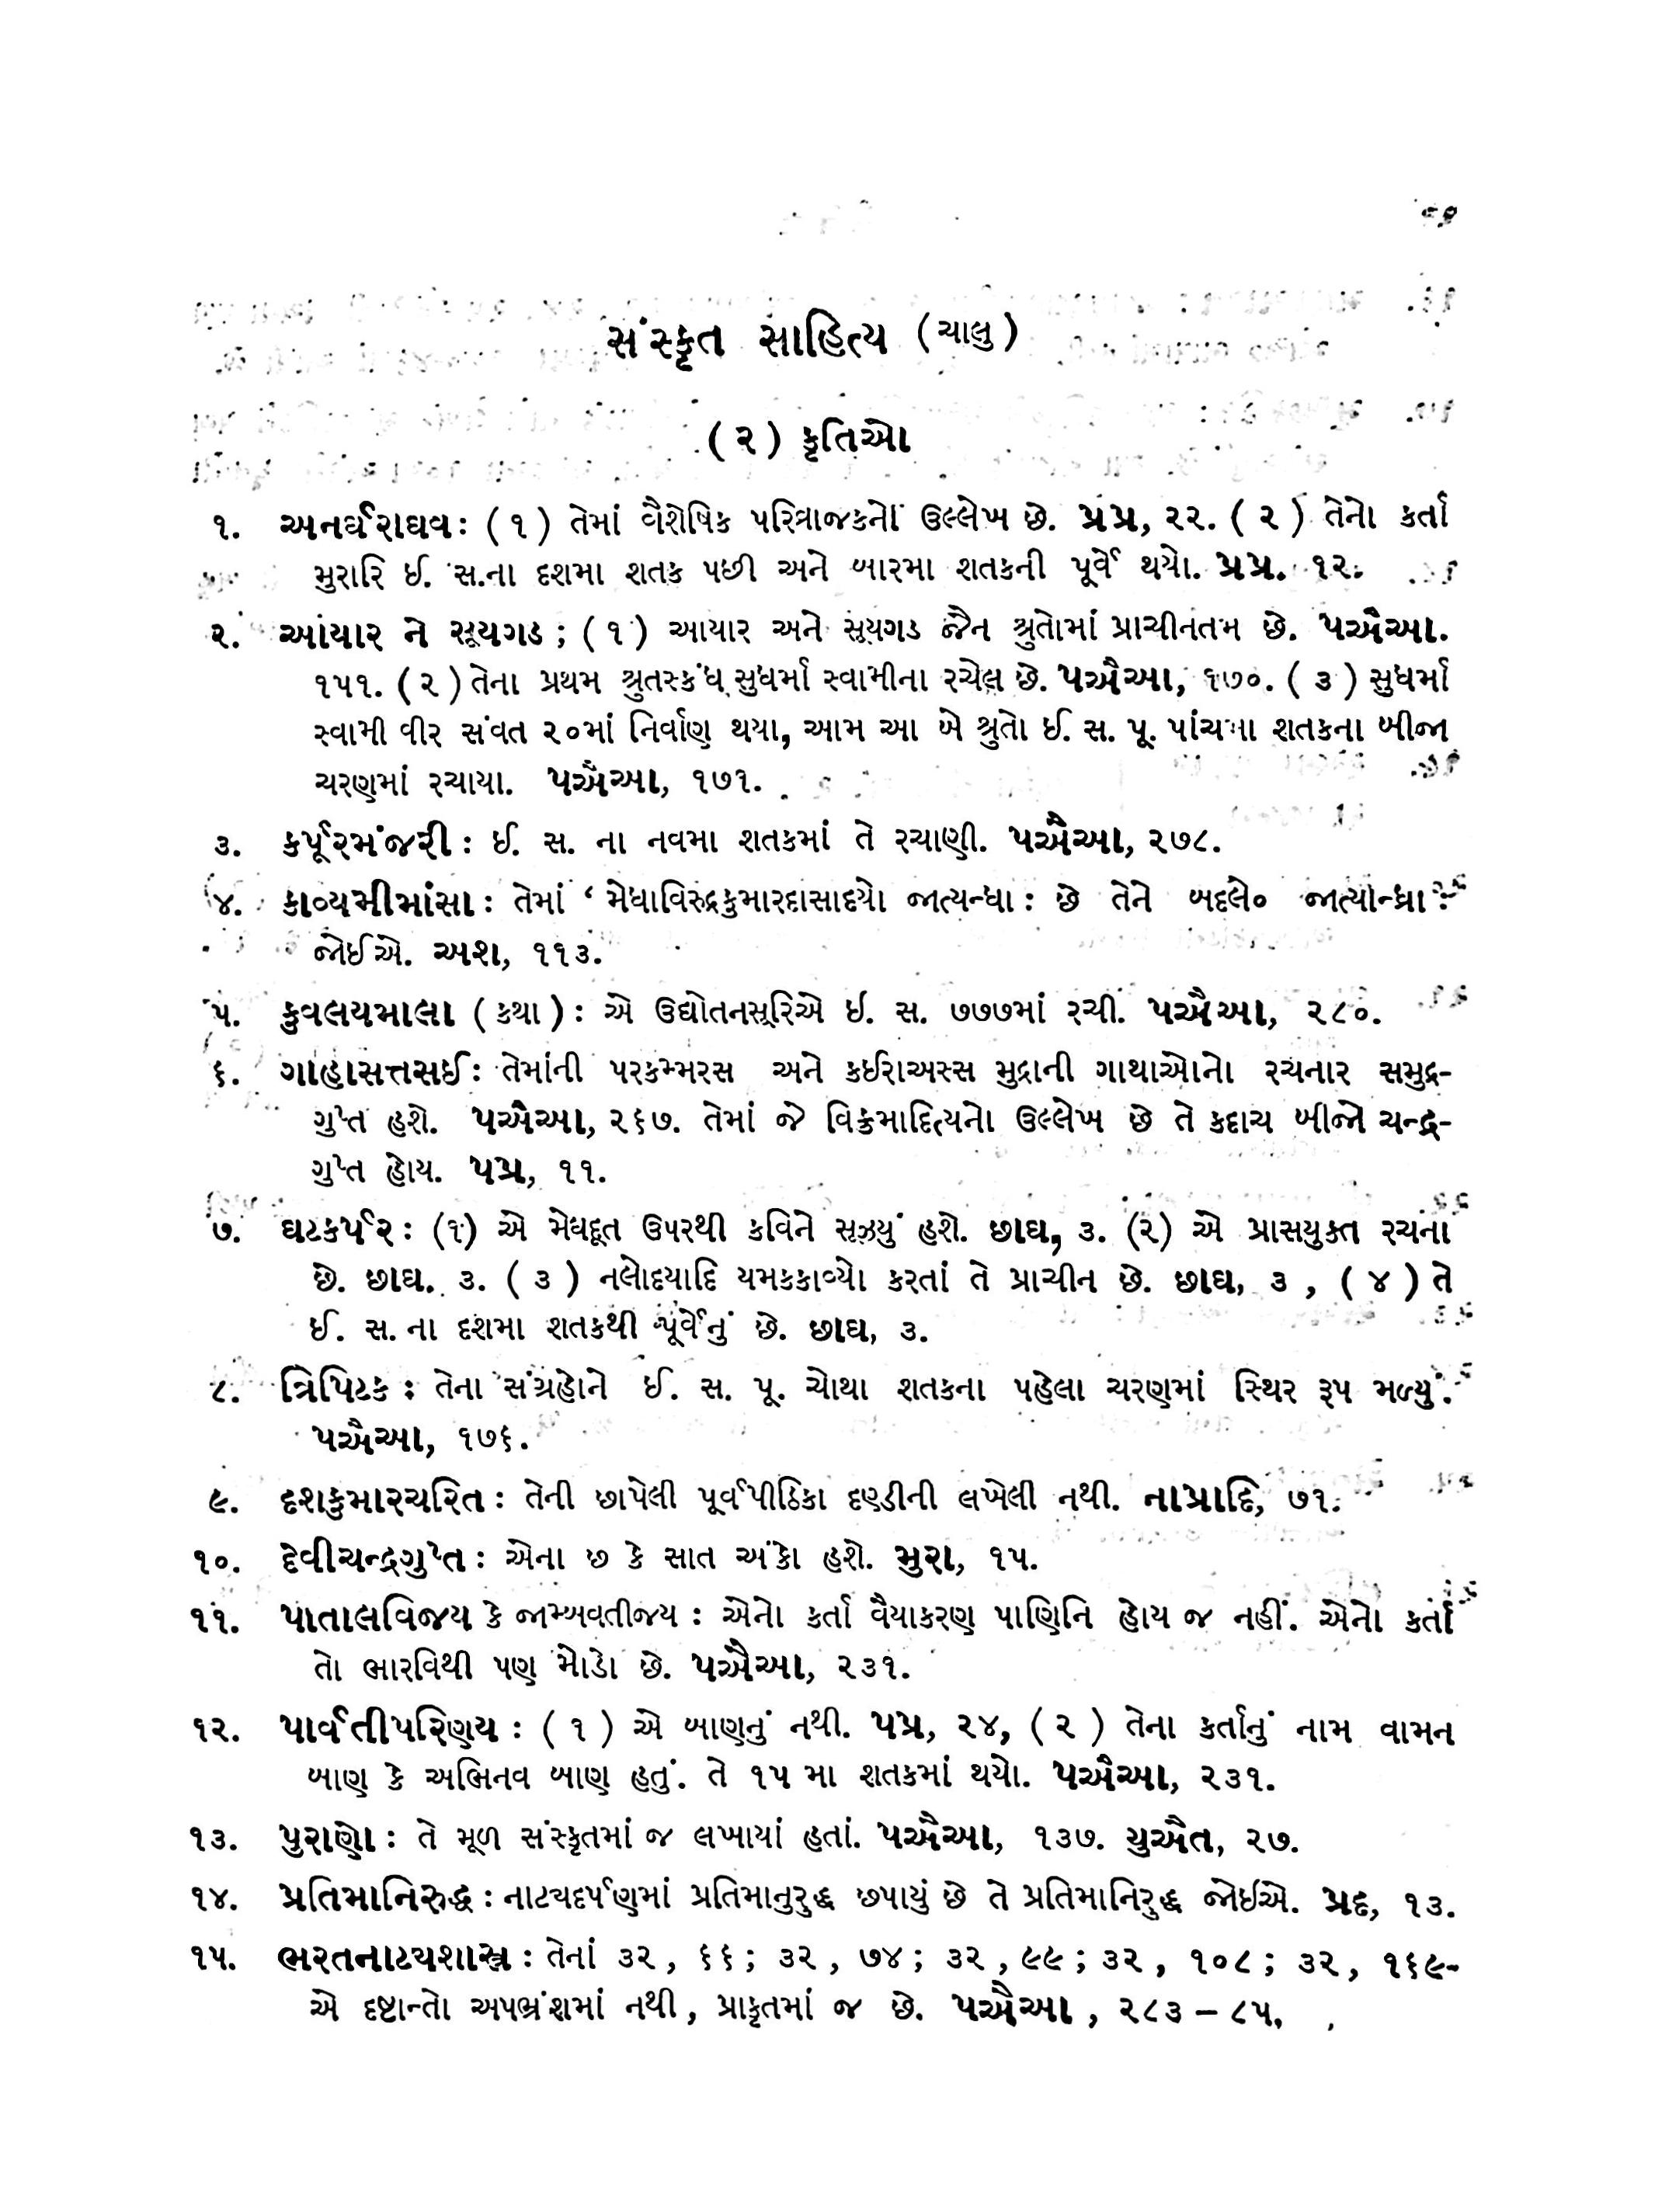 સંસ્કૃત સાહિત્ય (ચાલુ)
(૨) કૃતિઓ
૧. અનર્ઘરાઘવ: (૧) તેમાં વૈશેષિક પરિવ્રાજકનો ઉલ્લેખ છે. પ્રપ્ર, ૨૨. (૨) તેનો કર્તા
મુરારિ ઈ. સ.ના દશમા શતક પછી અને બારમા શતકની પૂર્વે થયો. પ્રપ્ર. ૧૨.
૨. આયાર ને સૂયગડ; (૧) આયાર અને સૂયગડ જૈન શ્રુતોમાં પ્રાચીનતમ છે. પઐઆ.
૧૫૧. (૨) તેના પ્રથમ શ્રુતસ્કંધ સુધર્મા સ્વામીના રચેલ છે. પઐઆ, ૧૭૦. (૩) સુધર્મા
સ્વામી વીર સંવત ૨૦માં નિર્વાણ થયા, આમ આ બે શ્રુતો ઈ. સ. પૂ. પાંચમા શતકના બીજા
ચરણમાં રચાયા. પઐઆ, ૧૭૧.
૩. કર્પૂરમંજરી: ઈ. સ. ના નવમા શતકમાં તે રચાણી. પઐઆ, ૨૭૮.
૪. કાવ્યમીમાંસા: તેમાં ‘મેધાવિરુદ્રકુમારદાસાદયો જાત્યન્ધા: છે તેને બદલે૦ જાત્યોન્ધ્રા:
જોઈએ. અશ, ૧૧૩.
૫. કુવલયમાલા (કથા): એ ઉદ્યોતનસૂરિએ ઈ. સ. ૭૭૭માં રચી. પઐઆ, ૨૮૦.
૬. ગાહાસત્તસઈ: તેમાંની પરકમ્મરસ અને કઈરાઅસ્સ મુદ્રાની ગાથાઓનો રચનાર સમુદ્ર-
ગુપ્ત હશે. પઐઆ, ૨૬૭. તેમાં જે વિક્રમાદિત્યનો ઉલ્લેખ છે તે કદાચ બીજો ચન્દ્ર-
ગુપ્ત હોય. પપ્ર, ૧૧.
૭. ઘટકર્પર: (૧) એ મેઘદૂત ઉપરથી કવિને સૂઝ્યું હશે. છાઘ, ૩. (૨) એ પ્રાસયુક્ત રચના
છે. છાઘ. ૩. (૩) નલોદયાદિ યમકકાવ્યો કરતાં તે પ્રાચીન છે. છાઘ, ૩, (૪) તે
ઈ. સ. ના દશમા શતકથી પૂર્વેનું છે. છાઘ, ૩.
૮. ત્રિપિટક: તેના સંગ્રહોને ઈ. સ. પૂ. ચોથા શતકના પહેલા ચરણમાં સ્થિર રૂપ મળ્યું.
પઐઆ, ૧૭૬.
૯. દશકુમારચરિત: તેની છાપેલી પૂર્વપીઠિકા દણ્ડીની લખેલી નથી. નાપ્રાદિ, ૭૧.
૧૦. દેવીચન્દ્રગુપ્ત: એના છ કે સાત અંકો હશે. મુરા, ૧૫.
૧૧. પાતાલવિજય કે જામ્બવતીજય: એનો કર્તા વૈયાકરણ પાણિનિ હોય જ નહીં. એનો કર્તા
તો ભારવિથી પણ મોડો છે. પઐઆ, ૨૩૧.
૧૨. પાર્વતીપરિણય: (૧) એ બાણનું નથી. પપ્ર, ૨૪, (૨) તેના કર્તાનું નામ વામન
બાણ કે અભિનવ બાણ હતું. તે ૧૫ મા શતકમાં થયો. પઐઆ, ૨૩૧.
૧૩. પુરાણો: તે મૂળ સંસ્કૃતમાં જ લખાયાં હતાં. પઐઆ, ૧૩૭. યુઐત, ૨૭.
૧૪. પ્રતિમાનિરુદ્ધ: નાટ્યદર્પણમાં પ્રતિમાનુરુદ્ધ છપાયું છે તે પ્રતિમાનિરુદ્ધ જોઈએ. પ્રદ, ૧૩.
૧૫. ભરતનાટ્યશાસ્ત્ર: તેનાં ૩૨, ૬૬; ૩૨, ૭૪; ૩૨, ૯૯; ૩૨, ૧૦૮; ૩૨, ૧૬૯-
એ દૃષ્ટાન્તો અપભ્રંશમાં નથી, પ્રાકૃતમાં જ છે. પઐઆ, ૨૮૩ – ૮૫.